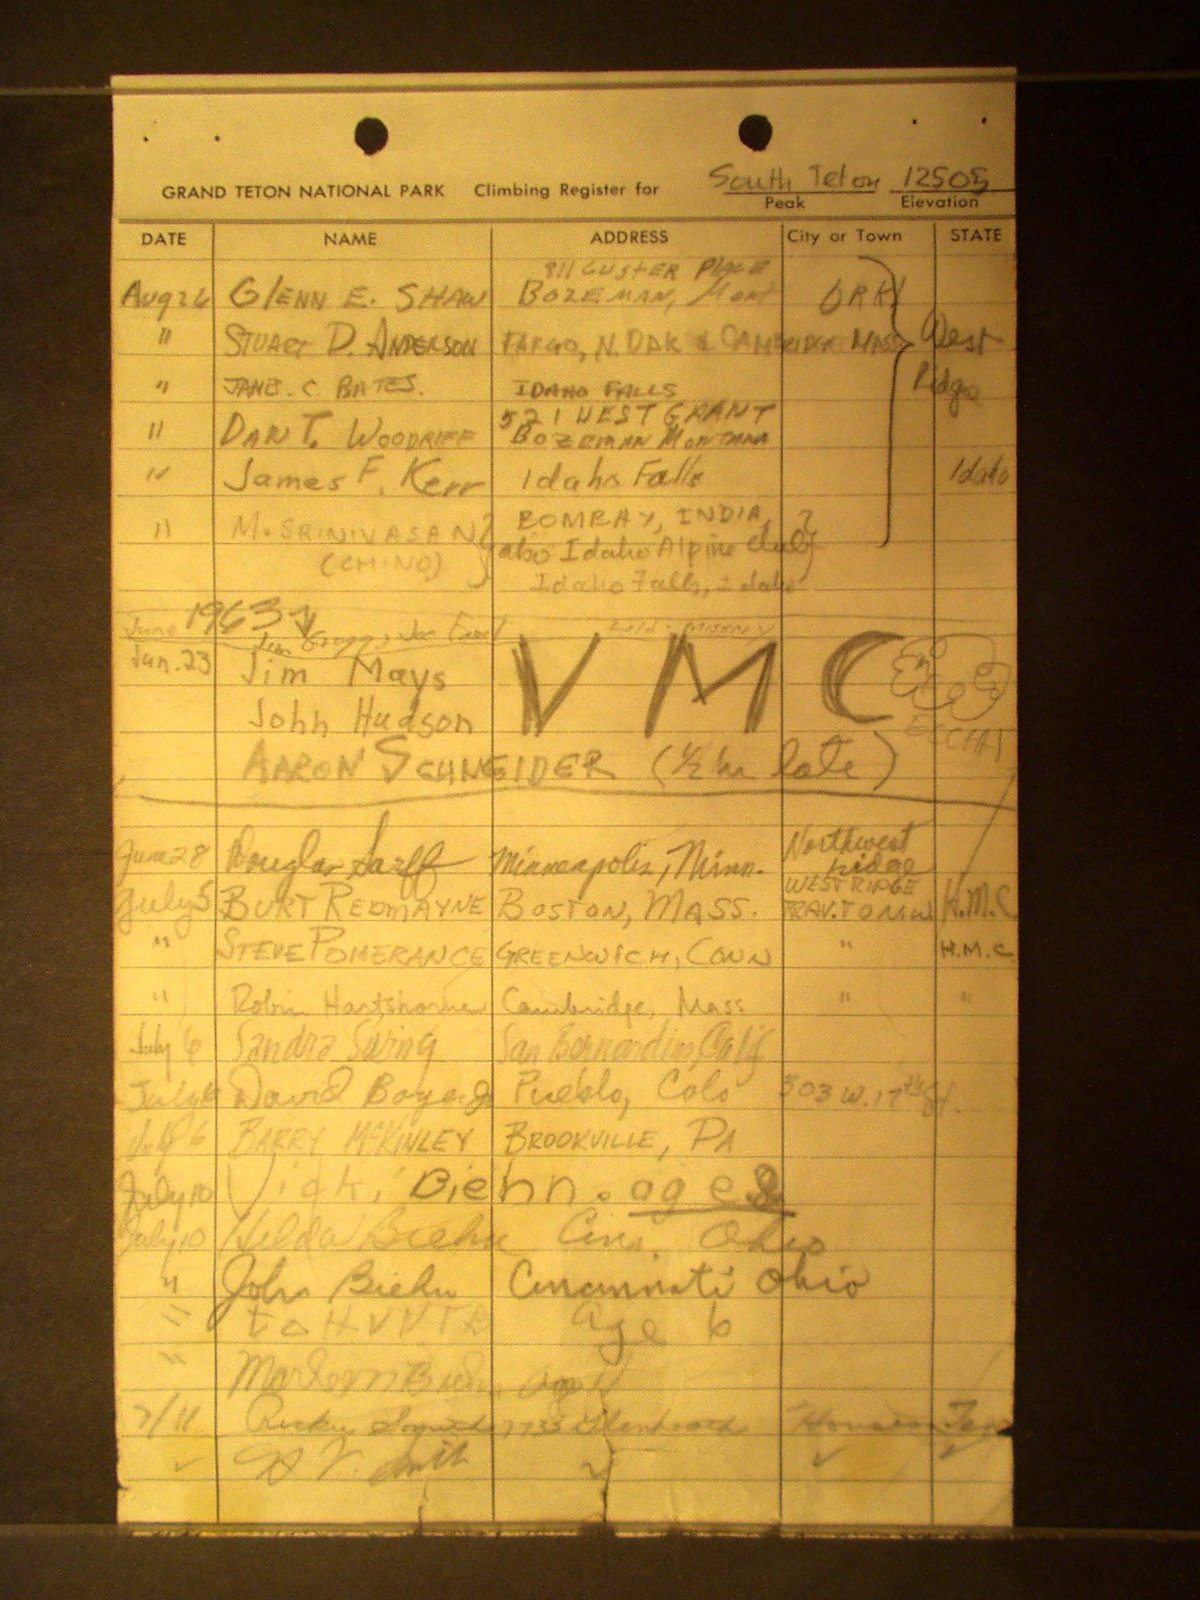 GRAND TETON NATIONAL PARK Climbing Register for South Teton 12505
Peak Elevation
DATE NAME ADDRESS City or Town STATE
811 CUSTER PLACE
Aug 26 GLENN E. SHAW BOZEMAN, Mont
" STUART D. ANDERSON FARGO, N. DAK & CAMBRIDGE MASS West
" JAMES C. BATES. IDAHO FALLS Ridge
521 WEST GRANT
" DAN T. WOODRIFF BOZEMAN MONTANA
" James F. Kerr Idaho Falls Idaho
" M. SRINIVASAN BOMBAY, INDIA,
(CHINO) also Idaho Alpine club
Idaho Falls, Idaho
June 1963
Jun. 23 Jim Mays V M C
John Hudson
AARON SCHNEIDER (1/2 hr late)
June 28 Douglas Sarff Minneapolis, Minn. Northwest ridge
July 5 BURT REDMAYNE BOSTON, MASS. WEST RIDGE H.M.C.
" STEVE POMERANCE GREENWICH, CONN " H.M.C.
" Robin Hartshorne Cambridge, Mass " "
July 6 Sandra Swing San Bernardino, Calif
July 6 David Pueblo, Colo 303 W. 17th St.
July 6 BARRY McKINLEY BROOKVILLE, PA
July 10 Vicki Biehn. age 8
July 10 Hilda Biehn Cinn. Ohio
" John Biehn Cincinnati Ohio
" Age 6
" Biehn age 11
7/11 Ricky 7735
Smith